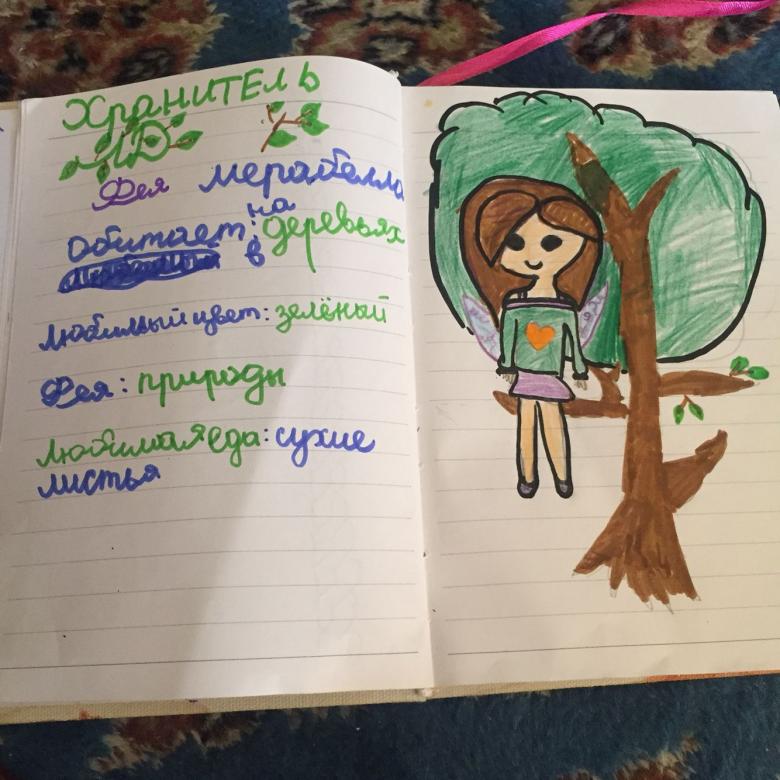 Хранитель
ЛД
Фея мерабелла
Обитает: на деревьях
в
Любимый цвет: зелёный
Фея: природы
Любимая еда: сухие
листья